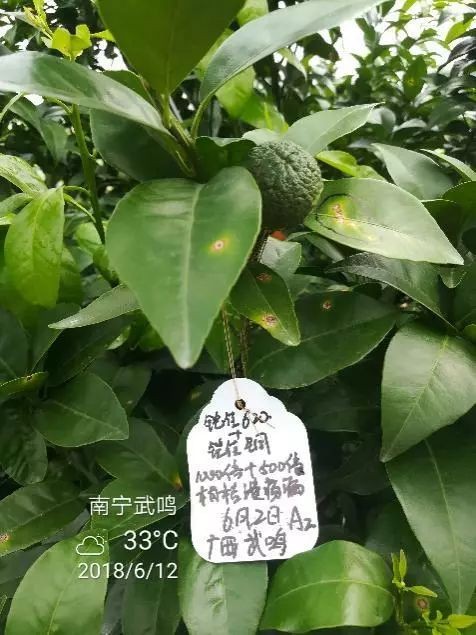 铠佳620
+
铠佳铜
1000倍+500倍
柑桔溃疡病
6月2日 A2
广西武鸣
南宁武鸣
33°C
2018/6/12